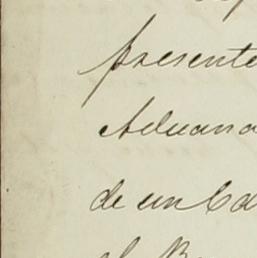 presente
Aduana
de un Ca
el B